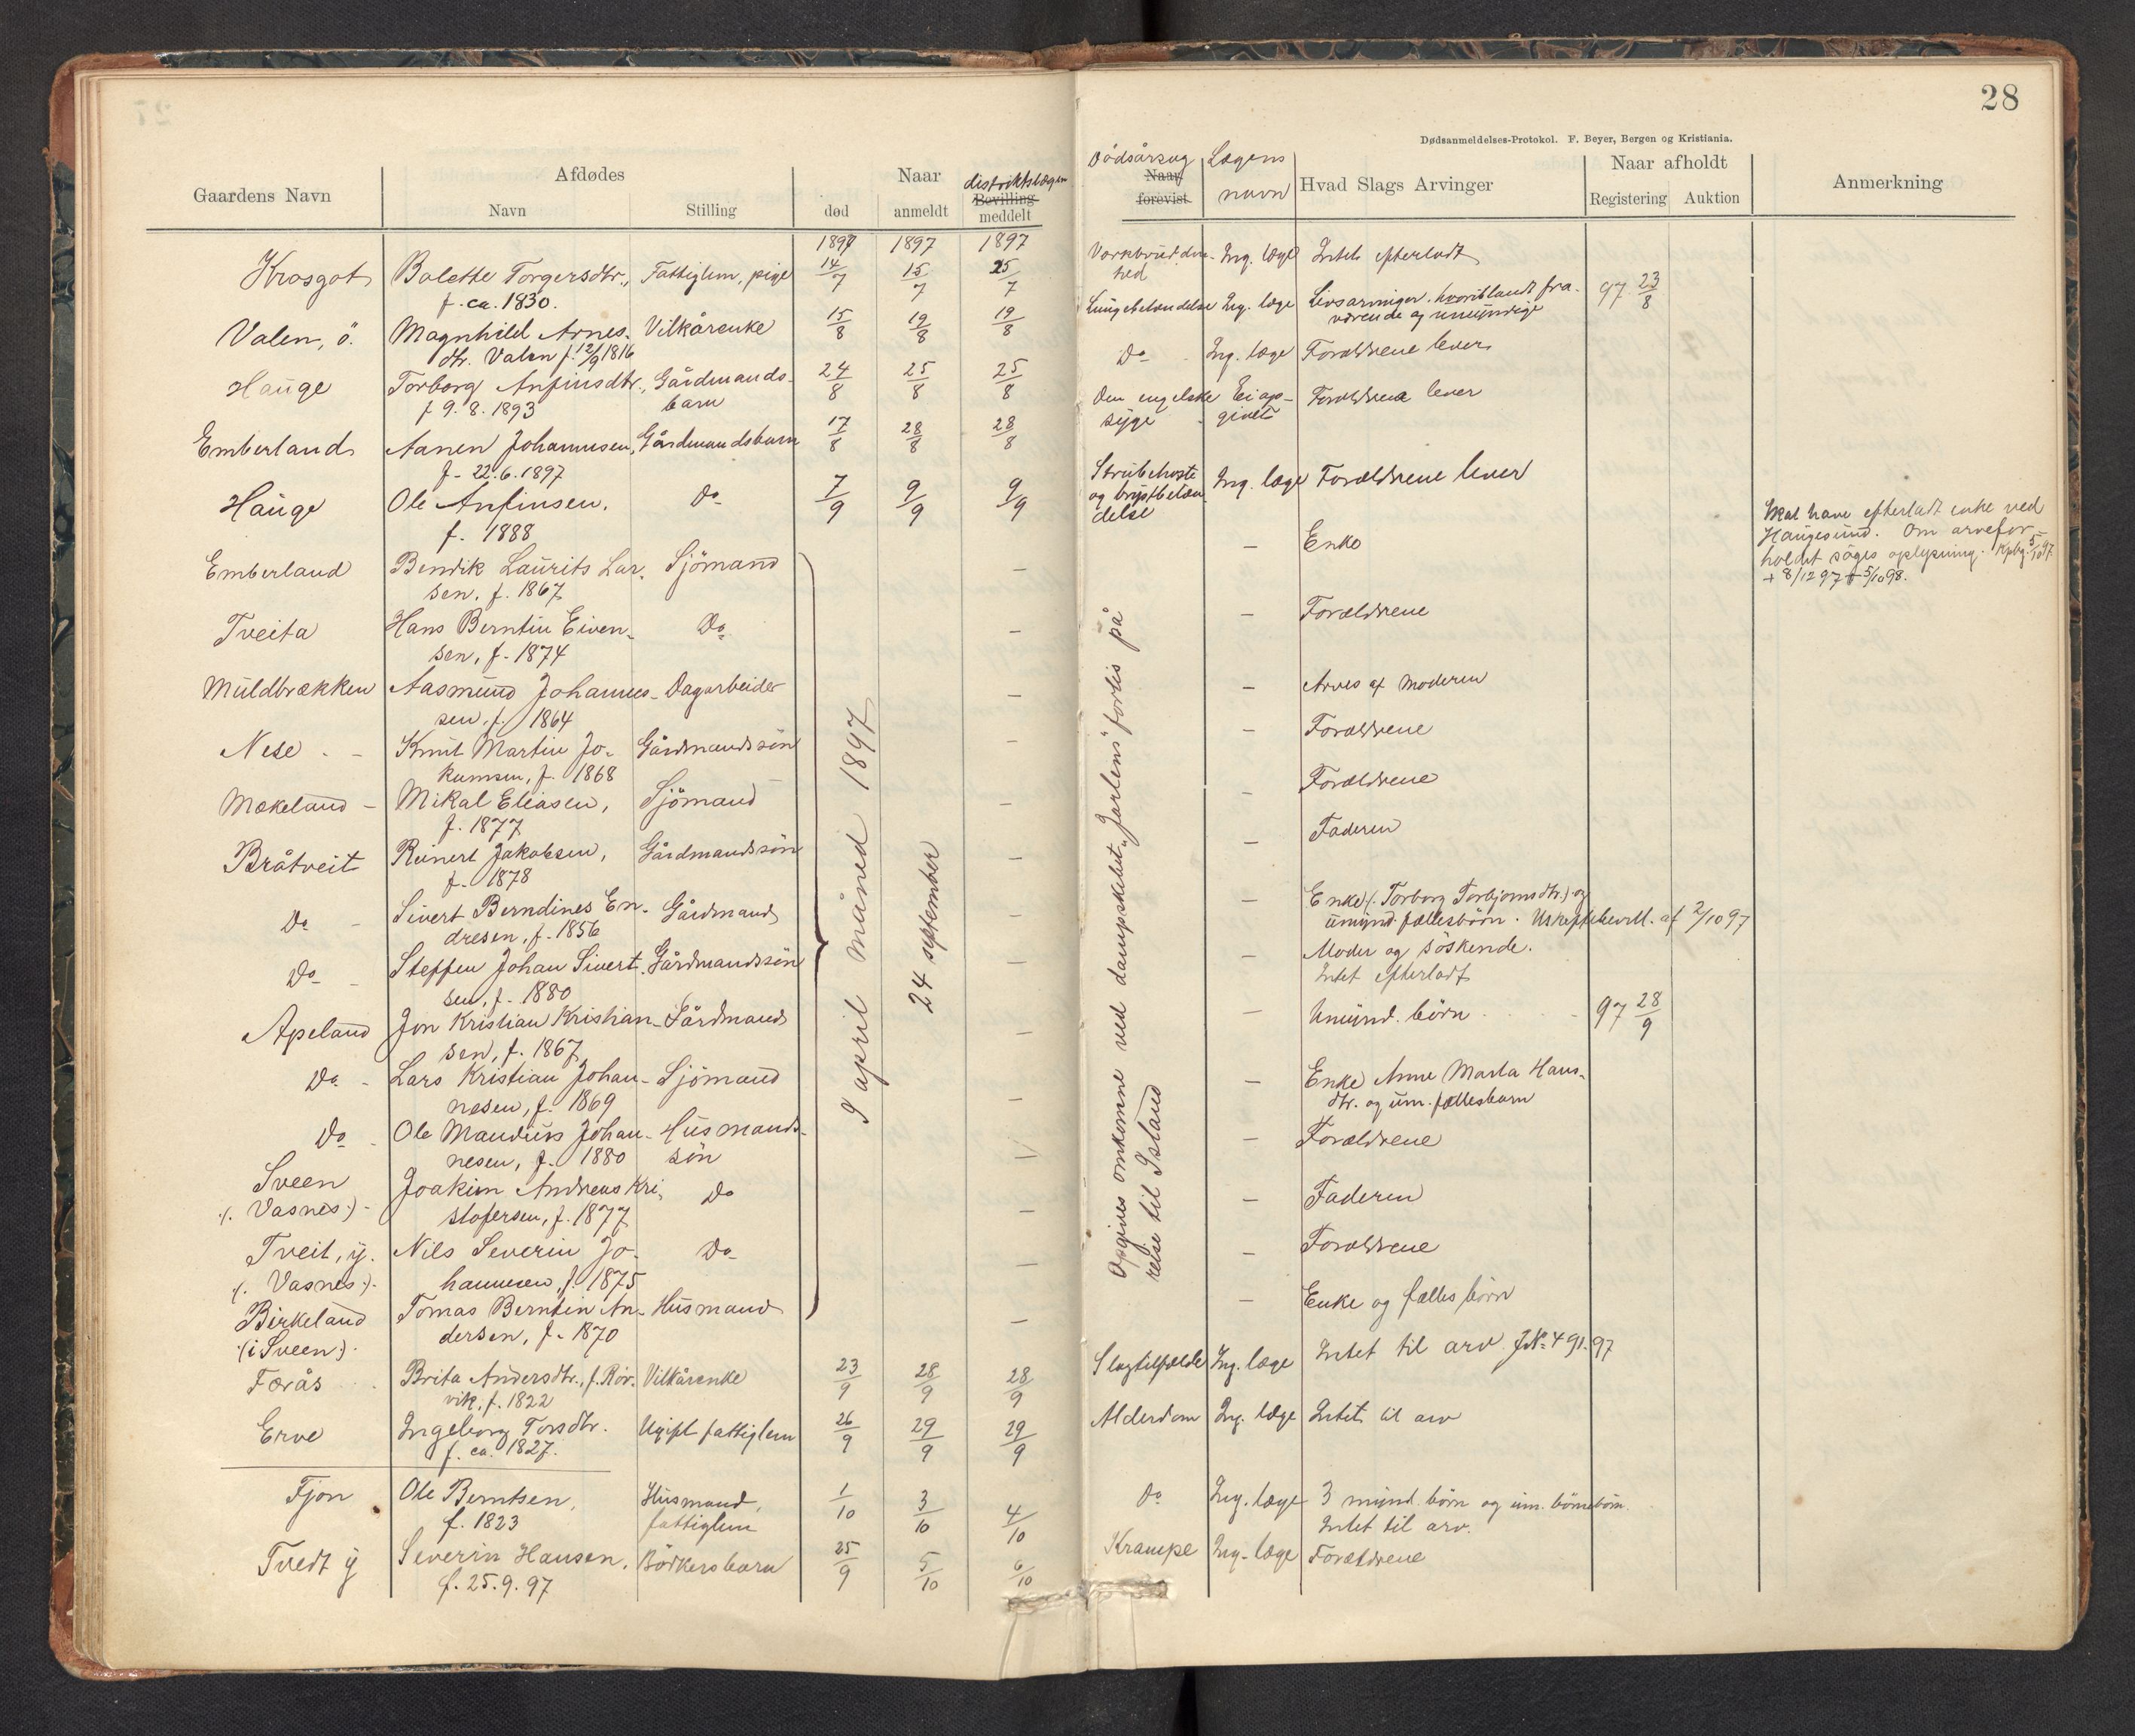 28
Dødsanmeldelses-Protokol. F. Beyer, Bergen og Kristiania.
Gaardens Navn
Afdødes
Navn
Stilling
Naar
død
anmeldt
distriktslægen
Bevilling
meddelt
Dødsårsag
Naar
forevist
Lægens
navn
Hvad Slags Arvinger
Naar afholdt
Registering
Auktion
Anmerkning
1897 1897 1897
Krosgot Bolette Torgersdtr., Fattiglem, pige 14/7 15/7 25/7 Ing. læge Intet efterladt
f. ca. 1830. hed
Valen, ö. Magnhild Arnes- Vilkårenke 15/8 19/8 19/8 Lungebetændelse Ing. læge Livsarvinger, hvoriblandt fra- 97 23/8
dtr. Valen f. 12/9 1816 værende og umyndige
Hauge Torborg Anfinsdtr., Gårdmands- 24/8 25/8 25/8 Do Ing. læge Forældrene lever
f 9. 8. 1893 barn
Emberland Aanen Johannesen, Gårdmandsbarn 17/8 28/8 28/8 Den engelske Ei op- Forældrene lever
f. 22.6.1897 syge givet
Hauge Ole Anfinsen, Do 7/9 9/9 9/9 Strubehoste Ing. læge Forældrene lever
f. 1888 og brystbetæn-
delse
Emberland Bendik Laurits Lar- Sjömand — — Enke
sen, f. 1867
Skal have efterladt enke ved
Haugesund. Om arvefor-
holdet söges oplysning. Kpbg. 5/10 97.
+ 8/12 97 + 5/10 98.
Tveita Hans Berntin Eiven- Do — — Forældrene
sen, f. 1874
Muldbrækken Aasmund Johannes- Dagarbeider — — Arves af Moderen
sen, f. 1864
Nese Knut Martin Jo- Gårdmandssön — — Forældrene
kumsen, f. 1868
Mækeland Mikal Eliasen, Sjömand — — Forældrene
f. 1877
Bråtveit Reinert Jakobsen, Gårdmandssön — — Faderen
f. 1878
Do Sivert Berndines En- Gårdmand — — Enke (: Torborg Torbjornsdtr.) og
dresen, f. 1856 umynd. fællesbörn. Uskiftebevill. af 2/10 97
Do Steffen Johan Sivert- Gårdmandssön — — Moder og söskende.
sen, f. 1880 Intet efterladt
Apeland Jon Kristian Kristian- Gårdmand — — Umynd. börn 97 28/9
sen, f. 1867
Do Lars Kristian Johan- Sjömand — — Enke Anne Marta Hans-
nesen, f. 1869 dtr. og um. fællesbarn
Do Ole Mandius Johan- Husmands- — — Forældrene
nesen, f. 1880 sön
Sveen Joakim Andreas Kri- Do — — Faderen
(: Vasnes :) stofersen, f. 1877
Tveit, y. Nils Severin Jo- Do — — Forældrene
(: Vasnes :) hannesen, f. 1875
Birkeland Tomas Berntin An- Husmand — — Enke og fælles börn
(i Sveen) dersen, f. 1870
I april måned 1897
24 september
Opgives omkomne ved dampskibet "Jarlens" forlis på
reise til Island
Færås Brita Andersdtr., f. Rör- Vilkårenke 23/9 28/9 28/9 Slagtilfælde Ing. læge Intet til arv JN. 491.97
vik, f. 1822
Erve Ingeborg Torsdtr. Ugift fattiglem 26/9 29/9 29/9 Alderdom Ing. læge Intet til arv
f. ca. 1827.
Fjon Ole Berntsen, Husmand, 1/10 3/10 4/10 Do Ing. læge 3 mynd. börn og um. börnebörn.
f. 1823 fattiglem Intet til arv.
Tvedt y Severin Hansen, Bödkersbarn 25/9 5/10 6/10 Krampe Ing. læge Forældrene
f. 25.9.97